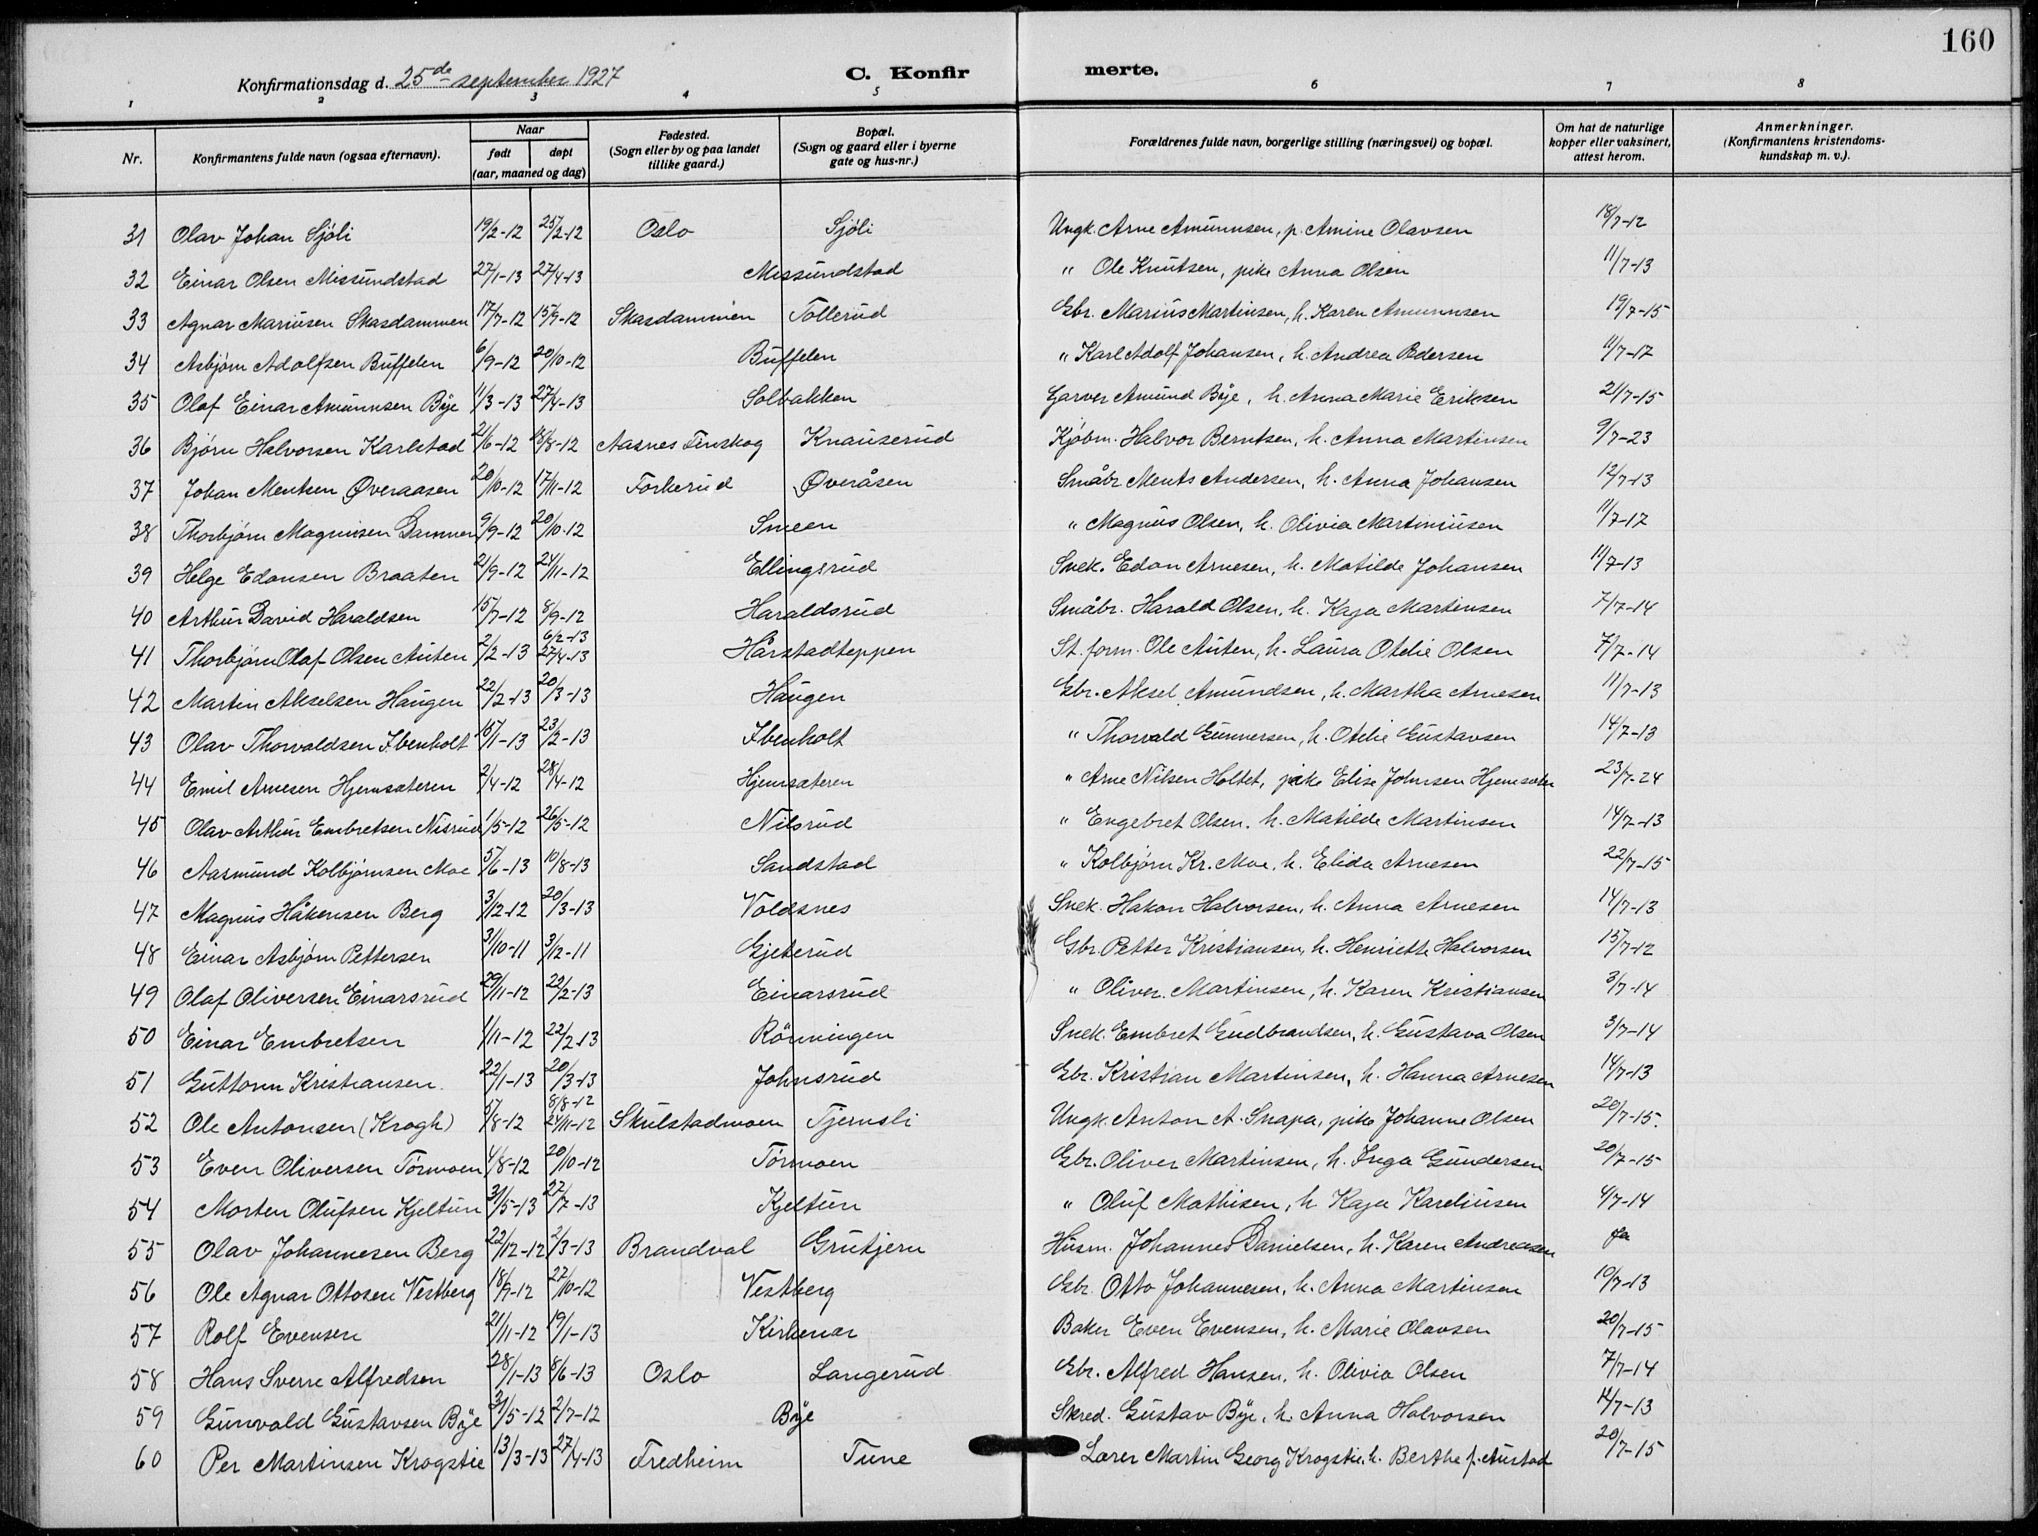 160
Konfirmationsdag d. 25de september 1927
C. Konfirmerte.
1 2 3 4 5 6 7 8
Nr. Konfirmantens fulde navn (ogsaa efternavn). Naar født døpt (aar, maaned og dag) Fødested. (Sogn eller by og paa landet tillike gaard.) Bopæl. (Sogn og gaard eller i byerne gate og hus-nr.) Forældrenes fulde navn, borgerlige stilling (næringsvei) og bopæl. Om hat de naturlige kopper eller vaksinert, attest herom. Anmerkninger. (Konfirmantens kristendomskundskap m. v.).
31 Olav Johan Sjöli 19/2-12 25/2-12 Oslo Sjöli Ungk. Arne Amunnsen, p. Amine Olavsen 18/7-12
32 Einar Olsen Missundstad 27/1-13 27/4-13 Missundstad " Ole Knutsen, pike Anna Olsen 11/7-13
33 Agnar Mariusen Skasdammen 17/7-12 15/9-12 Skasdammen Tollerud Gbr. Marius Martinsen, h. Karen Amunnsen 19/7-15
34 Asbjørn Adolfsen Buffelen 6/9-12 20/10-12 Buffelen " Karl Adolf Johansen, h. Andrea Pedersen 11/7-17
35 Olaf Einar Amunnsen Bye 11/3-13 27/4-13 Solbakken Garver Amund Bye, h. Anna Marie Eriksen 21/7-15
36 Bjørn Halvorsen Karlstad 21/6-12 18/8-12 Aasnes Finskog Knauserud Kjøbm. Halvor Berntsen, h. Anna Martinsen 9/7-23
37 Johan Mentsen Øveraasen 20/10-12 17/11-12 Forkerud Øveråsen Småbr Ments Andersen, h. Anna Johansen 12/7-13
38 Thorbjørn Magnusen Dammen 9/9-12 20/10-12 Smeen " Magnus Olsen, h. Olivia Martiniusen 11/7-17
39 Helge Edonsen Braaten 21/9-12 24/11-12 Ellingsrud Snek. Edon Arnesen, h. Matilde Johansen 11/7-13
40 Arthur David Haraldsen 15/7-12 8/9-12 Haraldsrud Småbr. Harald Olsen, h. Kaja Martinsen 7/7-14
41 Thorbjørn Olaf Olsen Auten 2/2-13 6/2-13 27/4-13 Hårstadteppen St. form. Ole Auten, h. Laura Otelie Olsen 7/7-14
42 Martin Akselsen Haugen 22/2-13 20/3-13 Haugen Gbr. Aksel Amundsen, h. Martha Arnesen 11/7-13
43 Olav Thorvaldsen Ibenholt 16/1-13 23/2-13 Ibenholt " Thorvald Gunnersen, h. Otelie Gustavsen 14/7-13
44 Emil Arnesen Hjemsæteren 2/4-12 28/4-12 Hjemsæteren " Arne Nilsen Holtet, pike Elise Johnsen Hjemsæter 23/7-24
45 Olav Arthur Embretsen Nisrud 1/5-12 26/5-12 Nilsrud " Engebret Olsen. h. Matilde Martinsen 14/7-13
46 Aasmund Kolbjørnsen Moe 5/6-13 10/8-13 Sandstad " Kolbjørn Kr. Moe, h. Elida Arnesen 22/7-15
47 Magnus Håkensen Berg 3/12-12 20/3-13 Voldsnes Snek. Hakon Halvorsen, h. Anna Arnesen 14/7-13
48 Einar Asbjørn Pettersen 31/10-11 3/12-11 Gjeterud Gbr. Petter Kristiansen, h. Henriette Halvorsen 15/7-12
49 Olaf Oliversen Einarsrud 29/11-12 22/2-13 Einarsrud " Oliver Martinsen, h. Karen Kristiansen 3/7-14
50 Einar Embretsen 1/11-12 22/2-13 Rönningen Snek. Embret Gudbrandsen, h. Gustava Olsen 3/7-14
51 Guttorm Kristiansen. 22/1-13 20/3-13 Johnsrud Gbr. Kristian Martinsen, h. Hanna Arnesen 14/7-13
52 Ole Antonsen (Krogh) 5/8-12 8/8-12 24/11-12 Skulstadmoen Tjernsli Ungk. Anton A. Snapa, pike Johanne Olsen 20/7-15.
53 Even Oliversen Törmoen 4/8-12 20/10-12 Törmoen Gbr. Oliver Martinsen, h. Inga Gundersen 20/7-15
54 Morten Olufsen Kjeltun 31/5-13 27/7-13 Kjeltun " Oluf Mathisen, h. Kaja Kareliusen 4/7-14
55 Olav Johannesen Berg 22/12-12 2/3-13 Brandval Grutjern Husm. Johannes Danielsen, h. Karen Andreasen fa
56 Ole Agnar Ottosen Vestberg 18/9-12 27/10-12 Vestberg Gbr. Otto Johannesen, h. Anna Martinsen 10/7-13
57 Rolf Evensen 21/11-12 19/1-13 Kirkenær Baker Even Evensen, h. Marie Olavsen 20/7-15
58 Hans Sverre Alfredsen 28/1-13 8/6-13 Oslo Langerud Gbr. Alfred Hansen, h. Olivia Olsen 7/7-14
59 Gunvald Gustavsen Bye 31/5-12 2/7-12 Bye Skred. Gustav Bye, h. Anna Halvorsen 14/7-13
60 Per Martinsen Krogstie 13/3-13 27/4-13 Fredheim Tune Lærer Martin Georg Krogstie, h. Berthe f. Austad 20/7-15